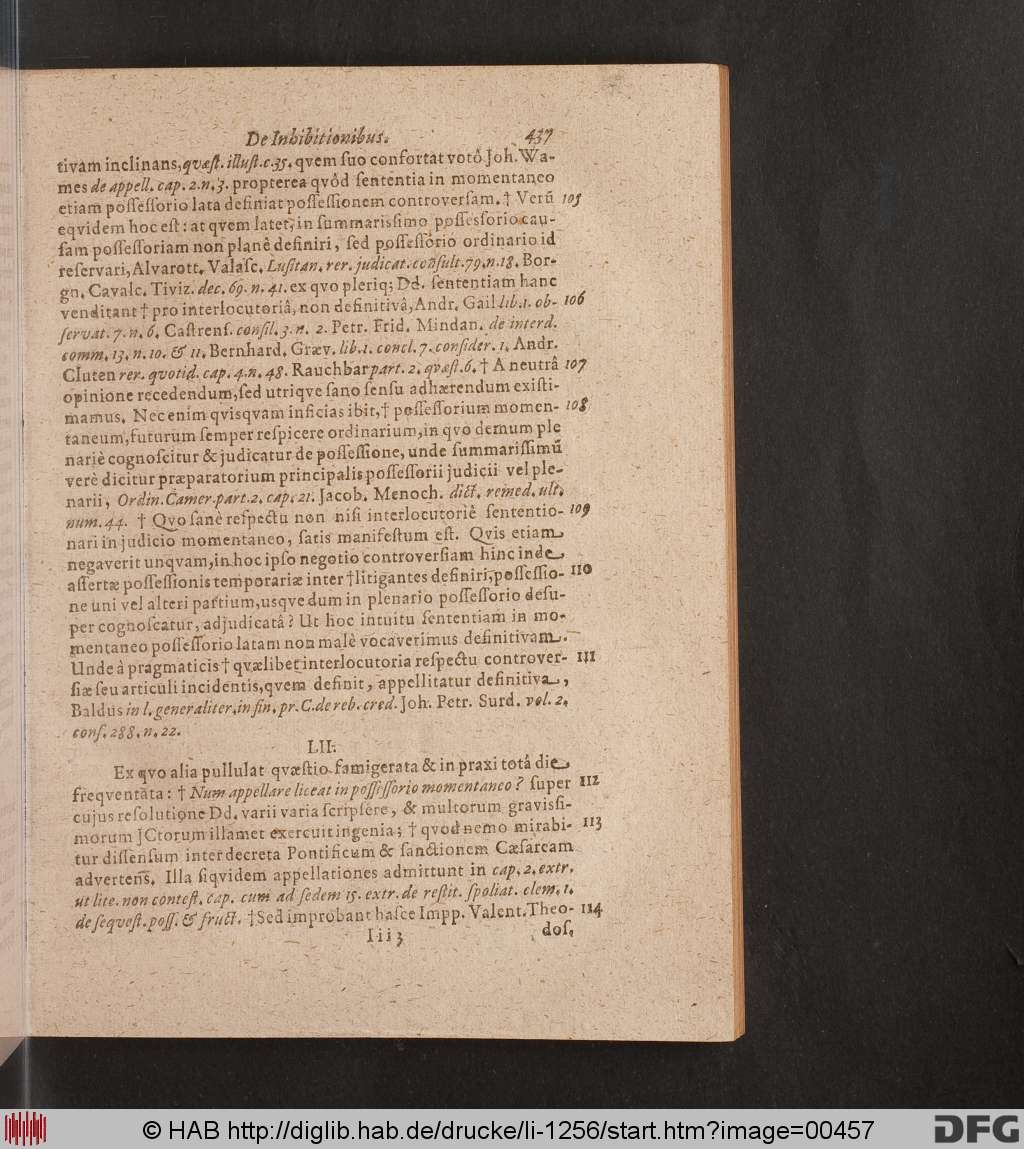 De Inhibitionibus. 437
tivam inclinans, quæst. illust. c. 35. qvem suo confortat votô Joh. Wa-
mes de appell. cap. 2. n. 3. propterea qvôd sententia in momentaneo
etiam possessorio lata definiat possessionem controversam. † Verū 105
eqvidem hoc est: at qvem latet, in summarissimo possessorio cau-
sam possessoriam non planè definiri, sed possessorio ordinario id
reservari, Alvarott. Valasc. Lusitan. rer. judicat. consult. 79. n. 18. Bor-
gn. Cavalc. Tiviz. dec. 69. n. 41. ex qvo pleriq; Dd. sententiam hanc
venditant † pro interlocutoriâ, non definitivâ, Andr. Gail lib. 1. ob- 106
servat. 7. n. 6. Castrens. consil. 3. n. 2. Petr. Frid. Mindan. de interd.
comm. 13. n. 10. & 11. Bernhard. Græv. lib. 1. concl. 7. consider. 1. Andr.
Cluten rer. quotid. cap. 4. n. 48. Rauchbar part. 2. qvæst. 6. † A neutrâ 107
opinione recedendum, sed utriqve sano sensu adhærendum existi-
mamus. Nec enim qvisqvam inficias ibit, † possessorium momen- 108
taneum, futurum semper respicere ordinarium, in qvo demum ple
nariè cognoscitur & judicatur de possessione, unde summarissimū
verè dicitur præparatorium principalis possessorii judicii vel ple-
narii, Ordin. Camer. part. 2. cap. 21. Jacob. Menoch. dict. remed. ult.
num. 44. † Qvo sanè respectu non nisi interlocutoriè sententio- 109
nari in judicio momentaneo, satis manifestum est. Qvis etiam
negaverit unqvam, in hoc ipso negotio controversiam hinc inde
assertæ possessionis temporariæ inter † litigantes definiri, possessio- 110
ne uni vel alteri partium, usqve dum in plenario possessorio desu-
per cognoscatur, adjudicatâ? Ut hoc intuitu sententiam in mo-
mentaneo possessorio latam non malè vocaverimus definitivam.
Unde à pragmaticis † qvælibet interlocutoria respectu controver- 111
siæ seu articuli incidentis, qvem definit, appellitatur definitiva,
Baldus in l. generaliter. in fin. pr. C. de reb. cred. Joh. Petr. Surd. vol. 2.
cons. 288. n. 22.
LII.
Ex qvo alia pullulat qvæstio famigerata & in praxi totâ die
freqventata: † Num appellare liceat in possessorio momentaneo? super 112
cujus resolutione Dd. varii varia scripsêre, & multorum gravissi-
morum JCtorum illamet exercuit ingenia; † qvod nemo mirabi- 113
tur dissensum inter decreta Pontificum & sanctionem Cæsaream
advertens. Illa siqvidem appellationes admittunt in cap. 2. extr.
ut lite. non contest. cap. cum ad sedem 15. extr. de restit. spoliat. clem. 1.
de seqvest. poss. & fruct. † Sed improbant hasce Impp. Valent. Theo- 114
Iii 3 dos.
© HAB http://diglib.hab.de/drucke/li-1256/start.htm?image=00457
DFG